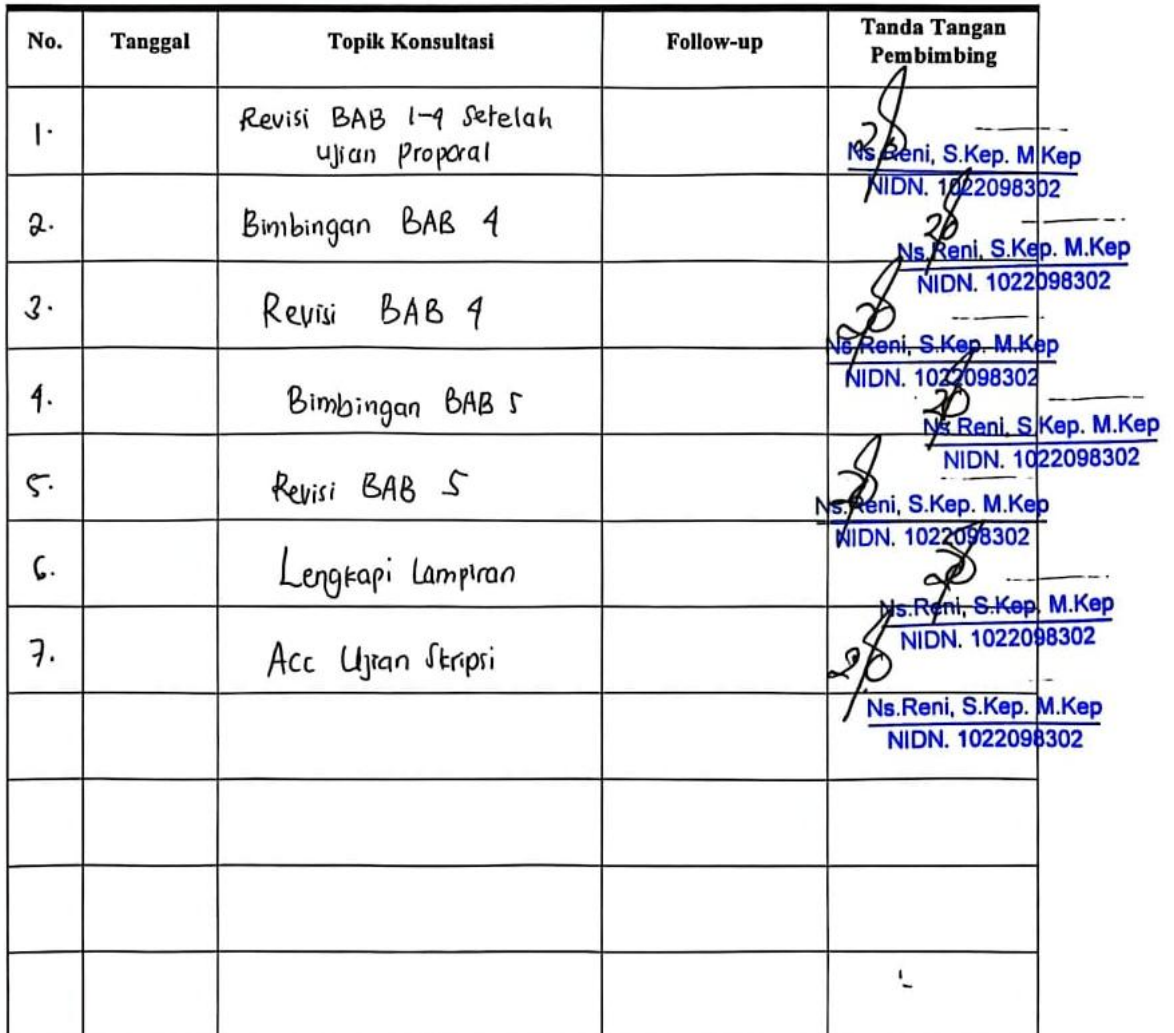 No. Tanggal Topik Konsultasi Follow-up Tanda Tangan
Pembimbing
1. Revisi BAB 1-4 Setelah
Ujian Proporal
Ns.Reni, S.Kep. M.Kep
NIDN. 1022098302
2. Bimbingan BAB 4
Ns.Reni, S.Kep. M.Kep
NIDN. 1022098302
3. Revisi BAB 4
Ns.Reni, S.Kep. M.Kep
NIDN. 1022098302
4. Bimbingan BAB 5
Ns.Reni, S.Kep. M.Kep
NIDN. 1022098302
5. Revisi BAB 5
Ns.Reni, S.Kep. M.Kep
NIDN. 1022098302
6. Lengkapi Lampiran
Ns.Reni, S.Kep. M.Kep
NIDN. 1022098302
7. Acc Ujian Skripsi
Ns.Reni, S.Kep. M.Kep
NIDN. 1022098302